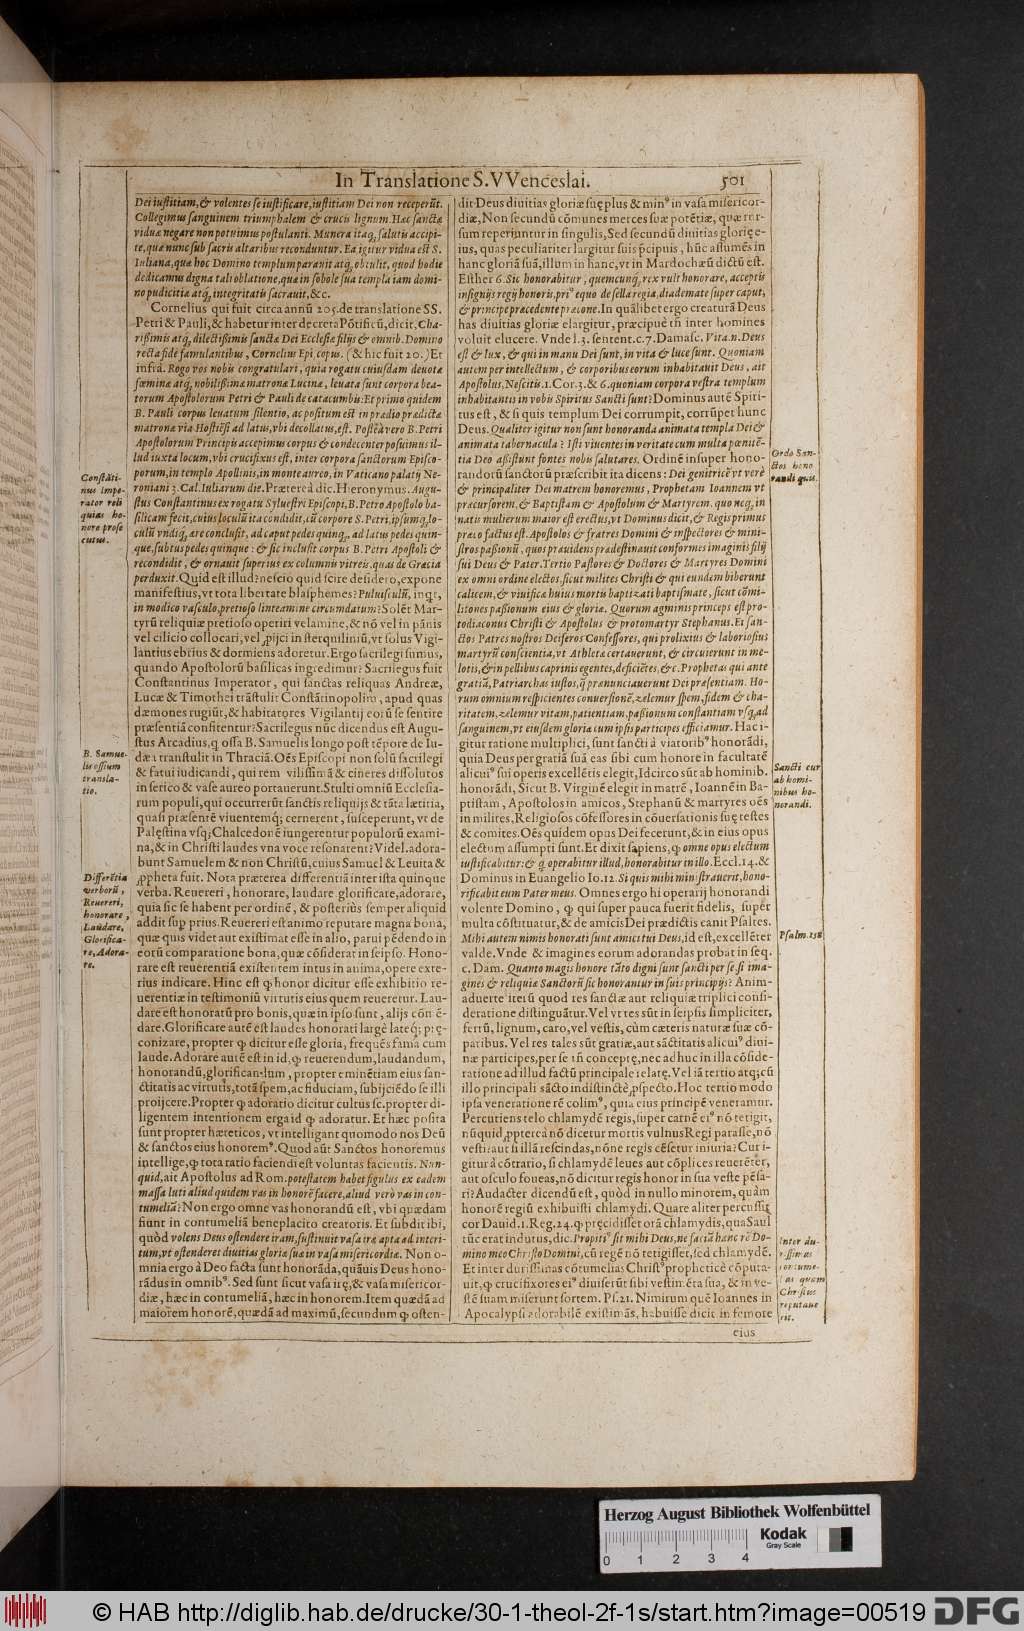 In Translatione S. VVenceslai. 501
Dei iustitiam, & volentes se iustificare, iustitiam Dei non receperūt.
Collegimus sanguinem triumphalem & crucis lignum. Hæc sanctæ
viduæ negare non potuimus postulanti. Munera itaq; salutis accipi-
te, quæ nunc sub sacris altaribus reconduntur. Ea igitur vidua est S.
Iuliana, quæ hoc Domino templum parauit atq; obtulit, quod hodie
dedicamus digna tali oblatione, quæ in sobole sua templa iam domi-
no pudicitiæ atq; integritatis sacrauit, &c.
Cornelius qui fuit circa annū 205. de translatione SS.
Petri & Pauli, & habetur inter decreta Pōtificū, dicit, Cha-
rissimis atq; dilectissimis sanctæ Dei Ecclesiæ filijs & omnib. Domino
recta fide famulantibus, Cornelius Epi copus. (& hic fuit 20.) Et
infrà. Rogo vos nobis congratulari, quia rogatu cuiusdam deuotæ
fœminæ atq; nobilissimæ matronæ Lucinæ, leuata sunt corpora bea-
torum Apostolorum Petri & Pauli de catacumbis: Et primo quidem
B. Pauli corpus leuatum silentio, ac positum est in prædio prædictæ
matronæ via Hostiēsi ad latus, vbi decollatus, est. Posteà vero B. Petri
Apostolorum Principis accepimus corpus & condecenter posuimus il-
lud iuxta locum, vbi crucifixus est, inter corpora sanctorum Episco-
porum, in templo Apollinis, in monte aureo, in Vaticano palatij Ne-
roniani 3. Cal. Iuliarum die. Prætereà dic. Hieronymus. Augu-
stus Constantinus ex rogatu Syluestri Episcopi, B. Petro Apostolo ba-
silicam fecit, cuius loculū ita condidit, cū corpore S. Petri, ipsumq; lo-
culū vndiq; ære conclusit, ad caput pedes quinq;, ad latus pedes quin-
que, subtus pedes quinque: & sic inclusit corpus B. Petri Apostoli &
recondidit, & ornauit superius ex columnis vitreis, quas de Græcia
perduxit. Quid est illud? nescio quid scire desidero, expone
manifestius, vt tota libertate blasphemes? Puluisculū, inqt,
in modico vasculo, pretioso linteamine circumdatum? Solēt Mar-
tyrū reliquiæ pretioso operiri velamine, & nō vel in pānis
vel cilicio collocari, vel ꝓijci in sterquiliniū, vt solus Vigi-
lantius ebrius & dormiens adoretur. Ergo sacrilegi sumus,
quando Apostolorū basilicas ingredimur? Sacrilegus fuit
Constantinus Imperator, qui sanctas reliquas Andreæ,
Lucæ & Timothei trāstulit Constātinopolim, apud quas
dæmones rugiūt, & habitatores Vigilantij eorū se sentire
præsentiā confitentur? Sacrilegus nūc dicendus est Augu-
stus Arcadius, q ossa B. Samuelis longo post tēpore de Iu-
dæa transtulit in Thraciā. Oēs Episcopi non solū sacrilegi
& fatui iudicandi, qui rem vilissimā & cineres dissolutos
in serico & vase aureo portauerunt. Stulti omniū Ecclesia-
rum populi, qui occurrerūt sanctis reliquijs & tāta lætitia,
quasi præsentē viuentemq; cernerent, susceperunt, vt de
Palęstina vsq; Chalcedonē iungerentur populorū exami-
na, & in Christi laudes vna voce resonarent? Videl. adora-
bunt Samuelem & non Christū, cuius Samuel & Leuita &
ꝓpheta fuit. Nota præterea differentiā inter ista quinque
verba. Reuereri, honorare, laudare glorificare, adorare,
quia sic se habent per ordinē, & posteriùs semper aliquid
addit sup prius. Reuereri est animo reputare magna bona,
quæ quis videt aut existimat esse in alio, parui pēdendo in
eorū comparatione bona, quæ cōsiderat in seipso. Hono-
rare est reuerentiā existentem intus in anima, opere exte-
rius indicare. Hinc est ꝙ honor dicitur esse exhibitio re-
uerentiæ in testimoniū virtutis eius quem reueretur. Lau-
dare est honoratū pro bonis, quæ in ipso sunt, alijs con ē-
dare. Glorificare autē est laudes honorati largè lateq; prę-
conizare, propter ꝙ dicitur esse gloria, frequēs fama cum
laude. Adorare autē est in id, ꝙ reuerendum, laudandum,
honorandū, glorificandum, propter eminētiam eius san-
ctitatis ac virtutis, totā spem, ac fiduciam, subijciēdo se illi
proijcere. Propter ꝙ adoratio dicitur cultus sc. propter di-
ligentem intentionem erga id ꝙ adoratur. Et hæc posita
sunt propter hæreticos, vt intelligant quomodo nos Deū
& sanctos eius honoremꝰ. Quod aūt Sanctos honoremus
intellige, ꝙ tota ratio faciendi est voluntas facientis. Nun-
quid, ait Apostolus ad Rom. potestatem habet figulus ex eadem
massa luti aliud quidem vas in honorē facere, aliud verò vas in con-
tumeliā? Non ergo omne vas honorandū est, vbi quædam
fiunt in contumeliā beneplacito creatoris. Et subdit ibi,
quòd volens Deus ostendere iram, sustinuit vasa iræ apta ad interi-
tum, vt ostenderet diuitias gloriæ suæ in vasa misericordiæ. Non o-
mnia ergo à Deo facta sunt honorāda, quāuis Deus hono-
rādus in omnibꝰ. Sed sunt sicut vasa irę, & vasa misericor-
diæ, hæc in contumeliā, hæc in honorem. Item quædā ad
maiorem honorē, quædā ad maximū, secundum ꝙ osten-
dit Deus diuitias gloriæ suę plus & minꝰ in vasa misericor-
diæ, Non secundū cōmunes merces suæ potētiæ, quæ rur-
sum reperiuntur in singulis, Sed secundū diuitias glorię e-
ius, quas peculiariter largitur suis p̄cipuis, hūc assumēs in
hanc gloriā suā, illum in hanc, vt in Mardochæū dictū est.
Esther 6. Sic honorabitur, quemcunq; rex vult honorare, acceptis
insignijs regij honoris, priꝰ equo de sella regia, diademate super caput,
& principe præcedente præcone. In quālibet ergo creaturā Deus
has diuitias gloriæ elargitur, præcipuè tñ inter homines
voluit elucere. Vnde l. 3. sentent. c. 7. Damasc. Vita. n. Deus
est & lux, & qui in manu Dei sunt, in vita & luce sunt. Quoniam
autem per intellectum, & corporibus eorum inhabitauit Deus, ait
Apostolus, Nescitis. 1. Cor. 3. & 6. quoniam corpora vestra templum
inhabitantis in vobis Spiritus Sancti sunt? Dominus autē Spiri-
tus est, & si quis templum Dei corrumpit, corrūpet hunc
Deus. Qualiter igitur non sunt honoranda animata templa Dei &
animata tabernacula? Isti viuentes in veritate cum multa pœnitē-
tia Deo assistunt fontes nobis salutares. Ordinē insuper hono-
randorū sanctorū præscribit ita dicens: Dei genitricē vt verè
& principaliter Dei matrem honoremus, Prophetam Ioannem vt
præcursorem, & Baptistam & Apostolum & Martyrem. quo neq; in
natis mulierum maior est erectus, vt Dominus dicit, & Regis primus
præco factus est. Apostolos & fratres Domini & inspectores & mini-
stros passionū, quos præuidens prædestinauit conformes imaginis filij
sui Deus & Pater. Tertio Pastores & Doctores & Martyres Domini
ex omni ordine electos, sicut milites Christi & qui eundem biberunt
calicem, & viuificæ huius mortis baptizati baptismate, sicut cōmi-
litones passionum eius & gloriæ. Quorum agminis princeps est pro-
todiaconus Christi & Apostolus & protomartyr Stephanus. Et san-
ctos Patres nostros Deiferos Confessores, qui prolixius & laboriosius
martyrū conscientia, vt Athletæ certauerunt, & circuierunt in me-
lotis, & in pellibus caprinis egentes, deficiētes, &c. Prophetas qui ante
gratiā, Patriarchas iustos, q̃ prænunciauerunt Dei præsentiam. Ho-
rum omnium respicientes conuersionē, zelemur spem, fidem & cha-
ritatem, zelemur vitam, patientiam, passionum constantiam vsq; ad
sanguinem, vt eiusdem gloria cum ipsis participes efficiamur. Hac i-
gitur ratione multiplici, sunt sancti à viatoribꝰ honorādi,
quia Deus per gratiā suā eas sibi cum honore in facultatē
alicuiꝰ sui operis excellētis elegit, Idcirco sūt ab hominib.
honorādi, Sicut B. Virginē elegit in matrē, Ioannē in Ba-
ptistam, Apostolos in amicos, Stephanū & martyres oēs
in milites, Religiosos cōfessores in cōuersationis suę testes
& comites. Oēs quidem opus Dei fecerunt, & in eius opus
electum assumpti sunt. Et dixit sapiens, ꝙ omne opus electum
iustificabitur: & q̃ operabitur illud, honorabitur in illo. Eccl. 14. &
Dominus in Euangelio Io. 12. Si quis mihi ministrauerit, hono-
rificabit eum Pater meus. Omnes ergo hi operarij honorandi
volente Domino, ꝙ qui super pauca fuerit fidelis, super
multa cōstituatur, & de amicis Dei prædictis canit Psaltes.
Mihi autem nimis honorati sunt amici tui Deus, id est, excellēter
valde. Vnde & imagines eorum adorandas probat in seq.
c. Dam. Quanto magis honore tāto digni sunt sancti per se, si ima-
gines & reliquiæ Sanctorū sic honorantur in suis principijs? Anim-
aduerte iterū quod res sanctæ aut reliquiæ triplici consi-
deratione distinguātur. Vel vt res sūt in seipsis simpliciter,
ferrū, lignum, caro, vel vestis, cùm cæteris naturæ suæ cō-
paribus. Vel res tales sūt gratiæ, aut sāctitatis alicuiꝰ diui-
næ participes, per se tñ conceptę, nec adhuc in illa cōside-
ratione ad illud factū principale relatę. Vel iā tertio atq; cū
illo principali sācto indistinctè, ꝓspecto. Hoc tertio modo
ipsa veneratione rē colimꝰ, quia eius principē veneramur.
Percutiens telo chlamydē regis, super carnē eiꝰ nō tetigit,
nūquid ꝓptereà nō dicetur mortis vulnus Regi parasse, nō
vesti: aut si illā rescindas, nōne regis cēsetur iniuria? Cur i-
gitur à cōtrario, si chlamydē leues aut cōplices reuerēter,
aut osculo foueas, nō dicitur regis honor in sua veste pēsa-
ri? Audacter dicendū est, quòd in nullo minorem, quàm
honorē regiū exhibuisti chlamydi. Quare aliter percussit
cor Dauid. 1. Reg. 24. ꝙ pręcidisset orā chlamydis, qua Saul
tūc erat indutus, dic. Propitiꝰ sit mihi Deus, ne faciā hanc rē Do-
mino meo Christo Domini, cū regē nō tetigisset, sed chlamydē.
Et inter durissimas cōtumelias Christꝰ propheticè cōputa-
uit, ꝙ crucifixores eiꝰ diuiserūt sibi vestimēta sua, & in ve-
stē suam miserunt sortem. Ps. 21. Nimirum quē Ioannes in
Apocalypsi adorabilē existimās, habuisse dicit in femore
eius
Constāti-
nus Impe-
rator reli
quias ho-
nore prose
cutus.
B. Samue-
lis ossium
transla-
tio.
Differētia
verborū,
Reuereri,
honorare,
Laudare,
Glorifica-
re, Adora-
re.
Ordo San-
ctos hono
randi quis.
Sancti cur
ab homi-
nibus ho-
norandi.
Psalm. 138
Inter du-
rissimas
contume-
lias quam
Christus
reputaue
rit.
Herzog August Bibliothek Wolfenbüttel
0 1 2 3 4
Kodak
Gray Scale
© HAB http://diglib.hab.de/drucke/30-1-theol-2f-1s/start.htm?image=00519
DFG